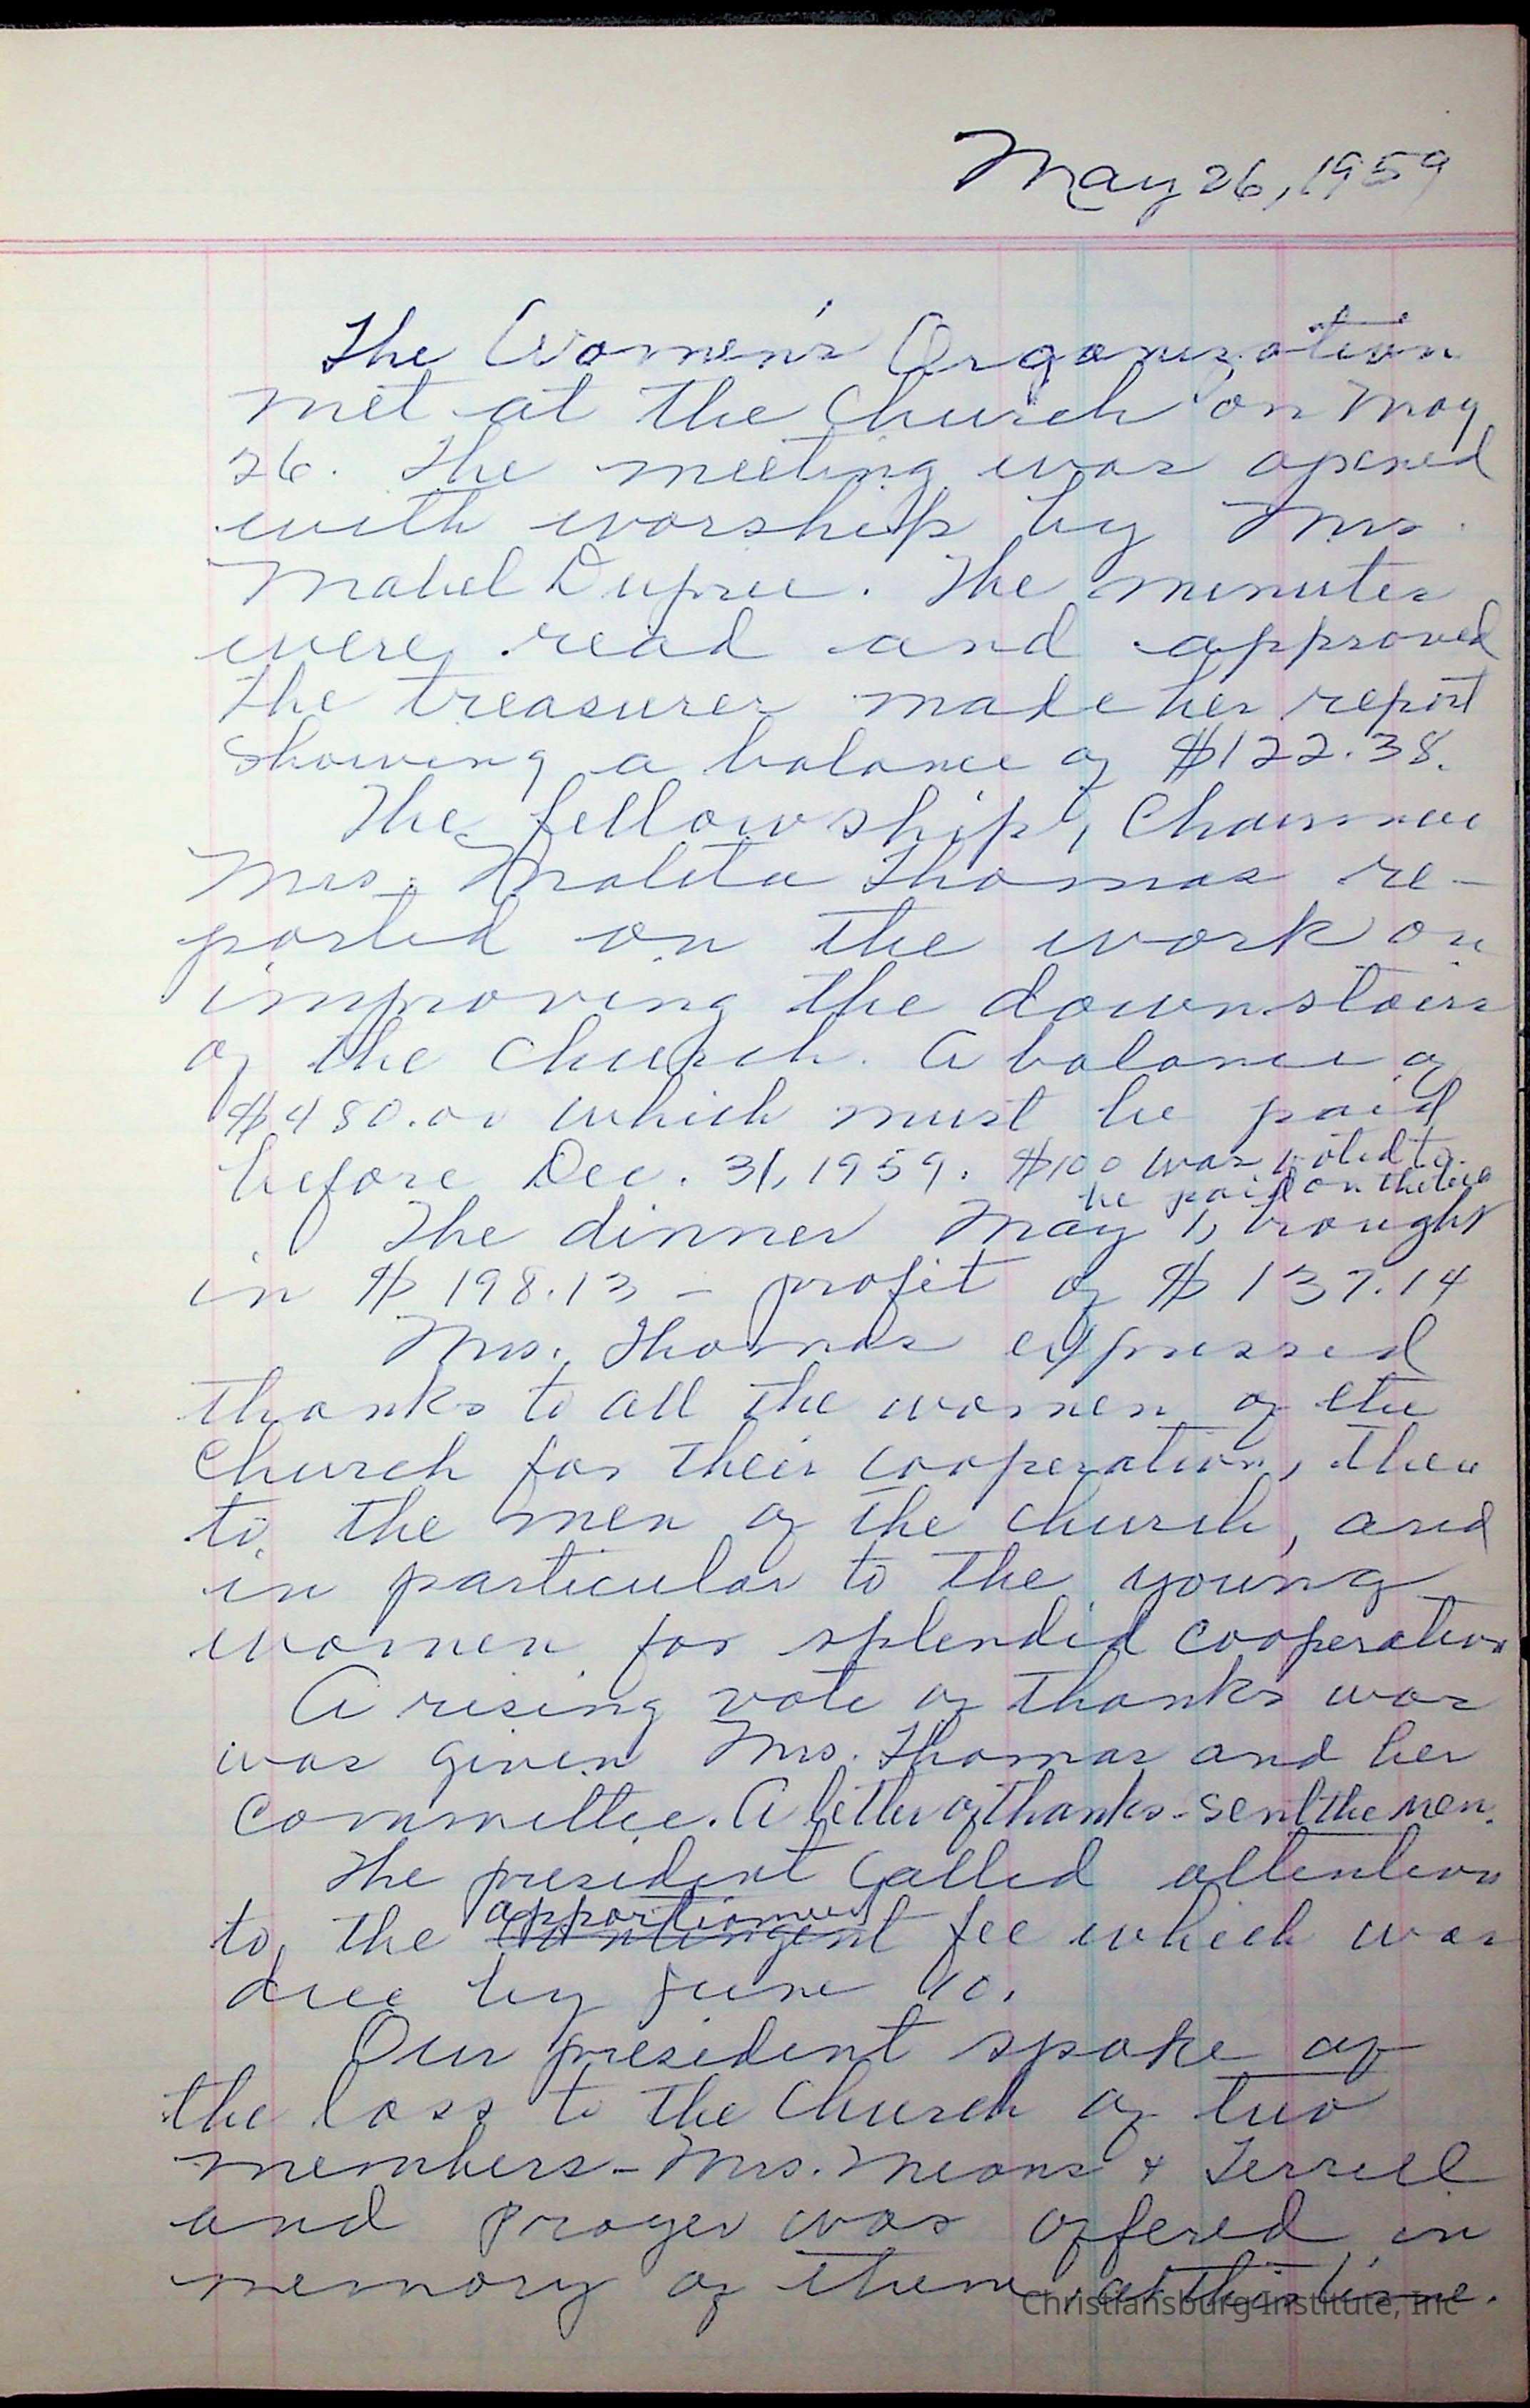 May 26, 1959
The Women's Organization
met at the Church on May
26. The meeting was opened
with worship by Mrs.
Mabel Dupree. The minutes
were read and approved
the treasurer made her report
showing a balance of $122.38.
The fellowship, Chairman
Mrs. Thomas re-
ported on the work on
improving the downstairs
of the Church. A balance of
$480.00 which must be paid
before Dec. 31, 1959. $100 was voted to
be paid on the
The dinner May 1, brought
in $198.13 - profit of $137.14
Mrs. Thomas expressed
thanks to all the women of the
Church for their cooperation, then
to the men of the church, and
in particular to the young
women for splendid cooperation
A rising vote of thanks was
was given Mrs. Thomas and her
committee. A letter of thanks - sent the men.
The president called attention
apportionment
to the contingent fee which was
due by June 10.
Our president spoke of
the loss to the Church of two
members - Mrs. Means & Terrell
and prayer was offered in
memory of them, at this time.
Christiansburg Institute, Inc